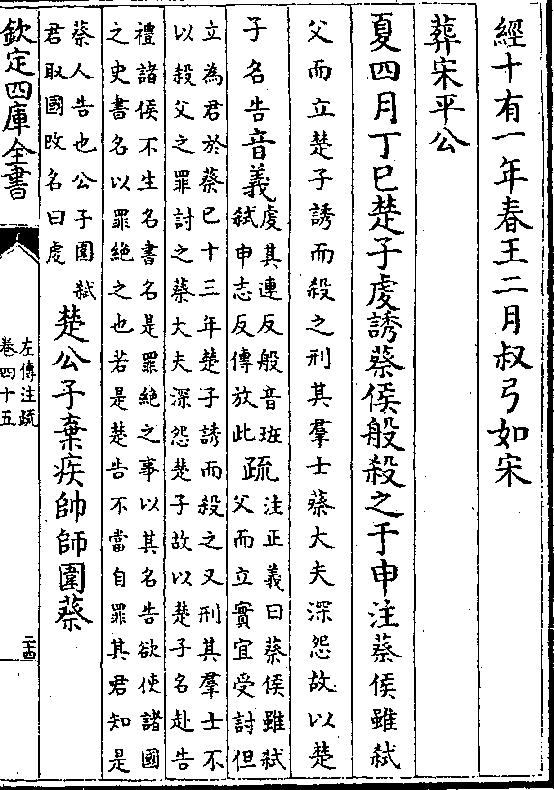 經十有一年春王二月叔弓如宋
葬宋平公
夏四月丁巳楚子虔誘蔡侯般殺之于申注蔡侯雖弑
父而立楚子誘而殺之刑其羣士蔡大夫深怨故以楚
子名告音義虔其連反般音班
弑申志反傳放此疏注正義曰蔡侯雖弑
父而立實宜受討但
以弑父之罪討之蔡大夫深怨楚子故以楚子名赴告
立為君於蔡已十三年楚子誘而殺之又刑其羣士不
禮諸侯不生名書名是罪絶之事以其名告欲使諸國
之史書名以罪絶之也若是楚告不當自罪其君知是
蔡人告也公子圍弑
君取國改名曰虔
楚公子棄疾帥師圍蔡
欽定四庫全書
左傳注疏
卷四十五
二十四